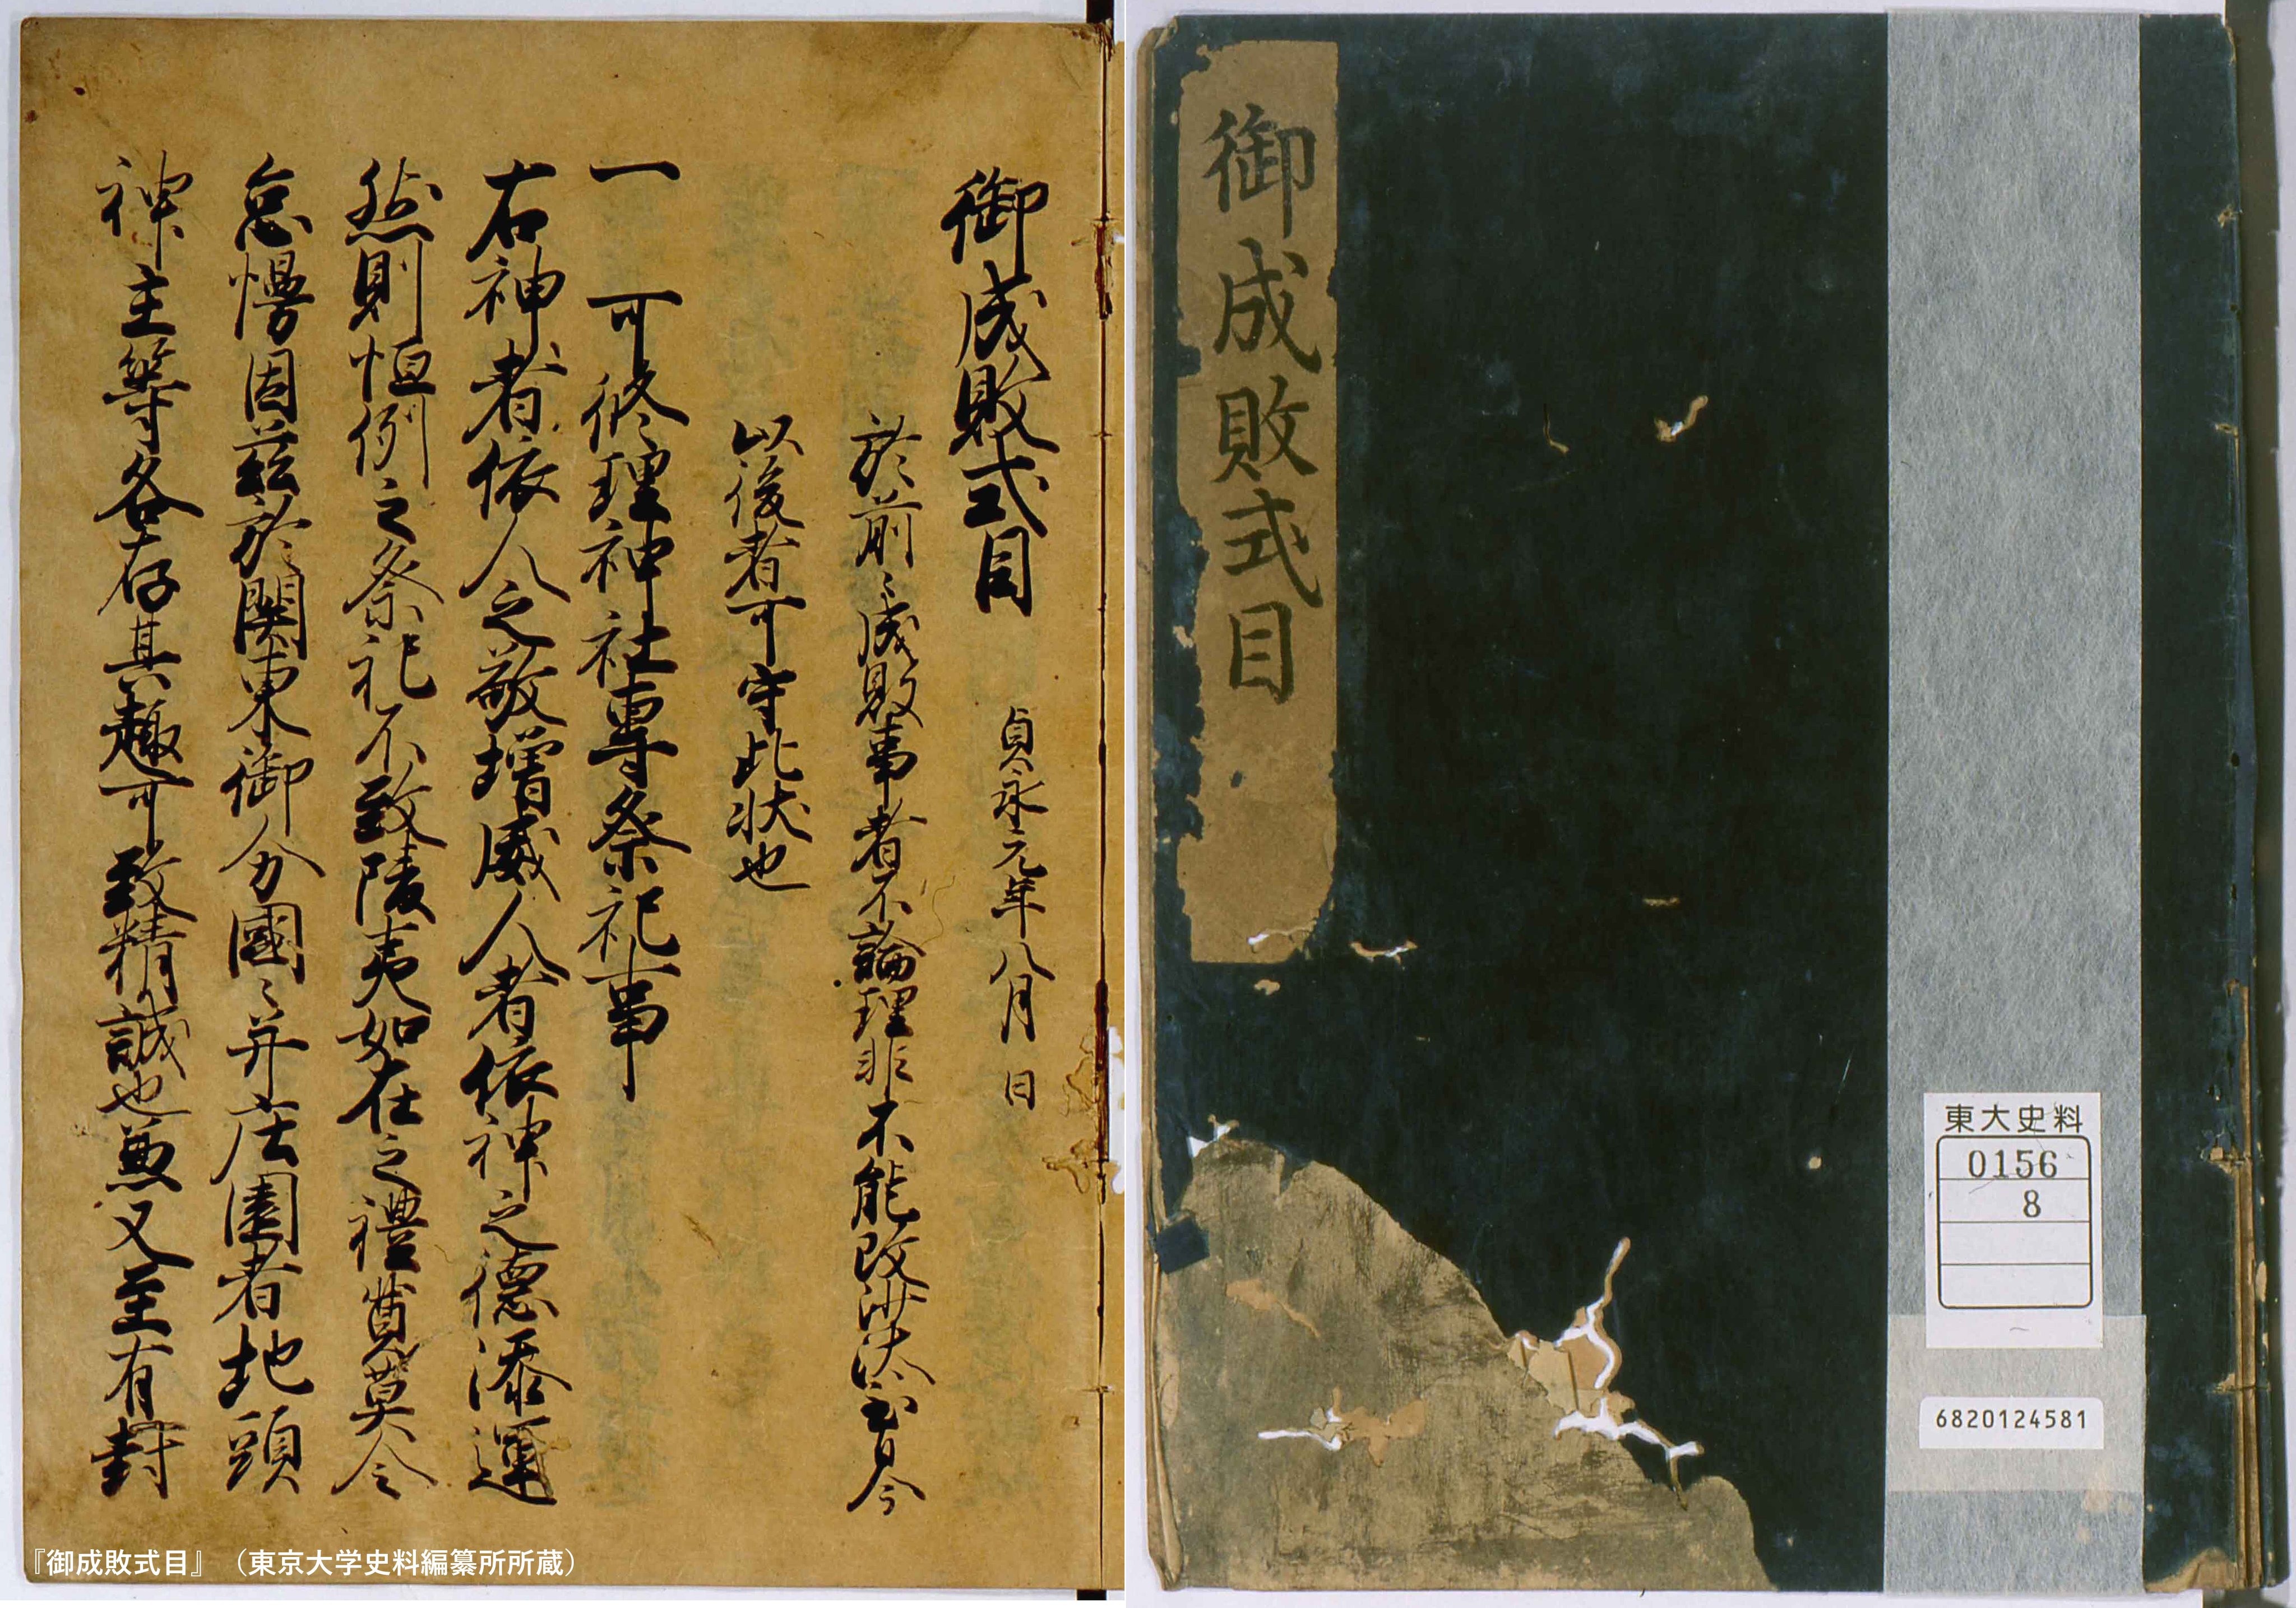 御成敗式目
東大史料
0156
8
6820124581
御成敗式目 貞永元年八月 日
於前々成敗事者不論理非不能改沙汰至自今
以後者可守此状也
一 可修理神社専祭祀事
右神者依人之敬増威人者依神之徳添運
然則恒例之祭祀不致陵夷如在之禮奠莫令
怠慢因茲於関東御分國々并庄園者地頭
神主等各存其趣可致精誠也兼又至有封
『御成敗式目』（東京大学史料編纂所所蔵）